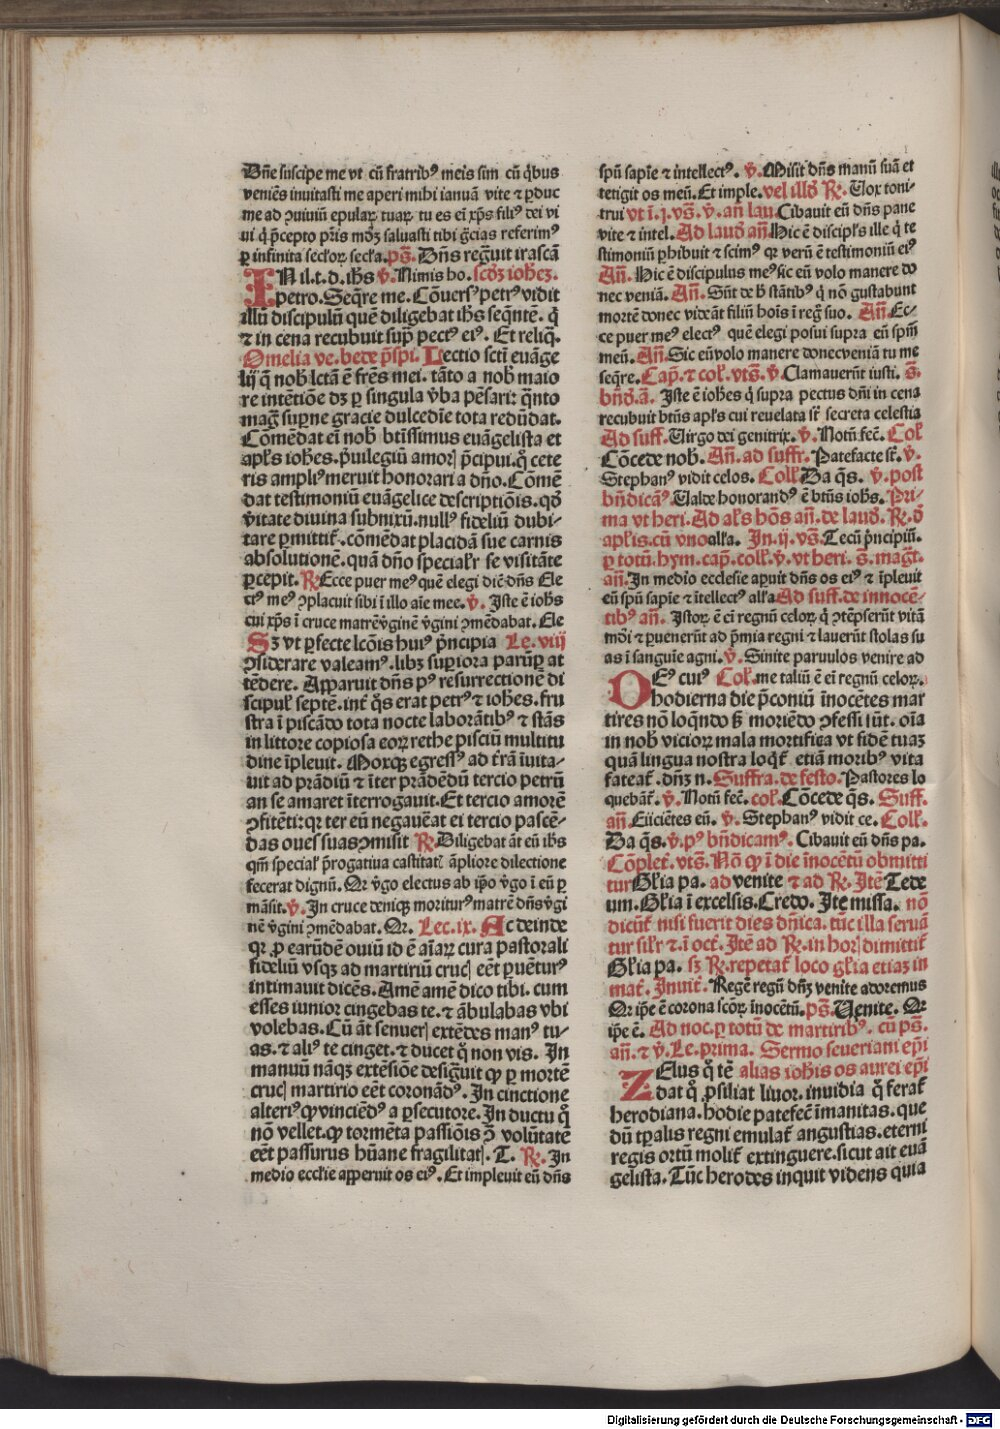 Dñe suscipe me vt cũ fratribꝰ meis sim cũ q̇bus
veniẽs inuitasti me aperi mihi ianuã vite ⁊ ꝑduc
me ad ↄuiuiũ epulaꝝ tuaꝝ tu es ei xp̃s filiꝰ dei vi
ui q̇ p̃cepto pr̃is mõꝫ saluasti tibi gr̃cias referimꝰ
ꝑ infinita secloꝝ secla. ps̃. Dñs reg̃uit irascã
IN il. t. d. ihs v̇. Nimis ho. scd̃ꝫ iohẽꝫ.
petro. Seq̃re me. Cõuersꝰ petrꝰ vidit
illũ discipulũ quẽ diligebat ihs seq̃ntẽ. q̇
⁊ in cena recubuit suꝑ pectꝰ eiꝰ. Et reliq̃.
Omelia ve. bede p̃spi. Lectio scti euãge
lij q̃ nob̃ lcta ẽ fr̃es mei. tãto a nob̃ maio
re intẽtiõe dꝫ ꝑ singula v̇ba pẽsari: q̃nto
mag̃ suꝑne gracie dulcedĩe tota redũdat.
Cõmẽdat ei nob̃ btĩssimus euãgelista et
apl̃s iohẽs. p̃uilegiũ amorꝭ p̃cipui. q̇ cete
ris ampliꝰ meruit honorari a dño. Cõmẽ
dat testimoniũ euãgelice descriptiõis. qđ
v̇itate diuina subnixũ. nullꝰ fideliũ dubi-
tare ꝑmittit̃. cõmẽdat placidã sue carnis
absolutionẽ. quã dño specialr̃ se visitãte
ꝑcepit. ℟. Ecce puer meꝰ quẽ elegi diẽ dñs Ele
ctꝰ meꝰ ↄplacuit sibi ĩ illo aĩe mee. v̇. Iste ẽ iohẽs
cui xp̃s ĩ cruce matrẽ v̇ginẽ v̇gini ↄmẽdabat. Ele
Sꝫ vt ꝑfecte lcõis huiꝰ p̃ncipia Le. viij
ↄsiderare valeamꝰ. libꝫ suꝑiora parũꝑ at
tẽdere. Apparuit dñs pꝰ resurrectionẽ di
scipul̃ septẽ. int̃ q̇s erat petrꝰ ⁊ iohẽs. fru
stra ĩ piscãdo tota nocte laborãtibꝰ ⁊ stãs
in littore copiosa eoꝝ rethe pisciũ multitu
dine ĩpleuit. Moxqꝫ egressꝰ ad tr̃ã ĩuita-
uit ad prãdiũ ⁊ ĩter prãdẽdũ tercio petrũ
an se amaret ĩterrogauit. Et tercio amorẽ
ↄfitẽti: qꝛ ter eũ negauẽat ei tercio pascẽ-
das oues suas ↄmisit ℟. Diligebat ãt eũ ihs
qm̃ special̃ p̃rogatiua castitatꝭ ãpliore dilectione
fecerat dignũ. Qꝛ v̇go electus ab ip̃o v̇go ĩ eũ ꝑ
mãsit. v̇. In cruce deniqꝫ moriturꝰ matrẽ dñs v̇gi
nẽ v̇gini ↄmẽdabat. Qꝛ. Lec. ix. Ac deinde
qꝛ ꝑ earũdẽ ouiũ id ẽ aĩaꝝ cura pastorali
fideliũ vsqꝫ ad martiriũ crucꝭ eẽt ꝑuẽturꝰ
intimauit dicẽs. Amẽ amẽ dico tibi. cum
esses iunior cingebas te. ⁊ ãbulabas vbi
volebas. Cũ ãt senuerꝭ extẽdes manꝰ tu-
as. ⁊ aliꝰ te cinget. ⁊ ducet q̊ non vis. In
manuũ nãqꝫ extẽsiõe desig̃uit ꝙ ꝑ mortẽ
crucꝭ martirio eẽt coronãdꝰ. In cinctione
alteriꝰ ꝙ vinciẽdꝰ a ꝑsecutore. In ductu q̊
nõ vellet. ꝙ tormẽta passiõis ↄ̃ volũtatẽ
eẽt passurus hũane fragilitatꝭ. T. ℟. In
medio ecclie apperuit os eiꝰ. Et impleuit eũ dñs
spũ sapiẽ ⁊ intellectꝰ. v̇. Misit dñs manũ suã et
tetigit os meũ. Et imple. vel illđ ℟. Vox toni-
trui vt ĩ. j. vs̃. v̇. añ lau. Cibauit eũ dñs pane
vite ⁊ intel. Ad lauđ añ. Hic ẽ discipl̃s ille q̇ te
stimoniũ ꝑhibuit ⁊ scimꝰ qꝛ verũ ẽ testimoniũ eiꝰ
Añ. Hic ẽ discipulus meꝰ sic eũ volo manere do
nec veniã. Añ. Sũt de h̃ stãtibꝰ q̇ nõ gustabunt
mortẽ donec videãt filiũ hoĩs ĩ reg̃ suo. Añ. Ec-
ce puer meꝰ electꝰ quẽ elegi posui supra eũ spm̃
meũ. Añ. Sic eũ volo manere donec veniã tu me
seq̃re. Cap̃. ⁊ col̃. vts̃. v̇. Clamauerũt iusti. s̃.
bñđ. ã. Iste ẽ iohẽs q̇ supra pectus dñi in cena
recubuit btũs apl̃s cui reuelata st̃ secreta celestia
Ad suff̃. Virgo dei genitrix. v̇. Notũ fec̃. Col̃
Cõcede nob̃. Añ. ad suffr̃. Patefacte st̃. v̇.
Stephanꝰ vidit celos. Coll̃. Da q̃s. v̇. post
bñdicãꝰ. Valde honorandꝰ ẽ btũs iohs̃. Pri-
ma vt heri. Ad al̃s hõs añ. de lauđ. ℟. đ
apl̃is. cũ vno all̃a. In. ij. vs̃. Tecũ p̃ncipiũ.
ꝑ totũ. hym. cap̃. coll̃. v̇. vt heri. s̃. mag̃t.
añ. In medio ecclesie aꝑuit dñs os eiꝰ ⁊ ĩpleuit
eũ spũ sapiẽ ⁊ ĩtellectꝰ all̃a Ad suff. de innocẽ-
tibꝰ añ. Istoꝝ ẽ ei regnũ celoꝝ q̇ ↄtẽpserũt vitã
mõi ⁊ ꝑuenerũt ad p̃mia regni ⁊ lauerũt stolas su
as ĩ sanguĩe agni. v̇. Sinite paruulos venire ad
OEꝰ cuiꝰ Col̃. me taliũ ẽ ei regnũ celoꝝ.
hodierna die p̃coniũ ĩnocẽtes mar
tires nõ loq̃ndo ß moriẽdo ↄfessi sũt. oĩa
in nob̃ vicioꝝ mala mortifica vt fidẽ tuaꝫ
quã lingua nostra loq̇t̃ etiã moribꝰ vita
fateat̃. dñꝫ n. Suffra. de festo. Pastores lo
quebãt̃. v̇. Notũ fec̃. col̃. Cõcede q̃s. Suff.
añ. Eiiciẽtes eũ. v̇. Stephanꝰ vidit ce. Coll̃.
Da q̃s. v̇. pꝰ bñdicamꝰ. Cibauit eũ dñs pa.
Cõplet̃. vts̃. Nõ ꝙ ĩ die ĩnocẽtũ obmitti
tur Gl̃ia pa. ad venite ⁊ ad ℟. Itẽ Te de
um. Gl̃ia ĩ excelsis. Credo. Ite missa. nõ
dicũt̃ nisi fuerit dies dñica. tũc illa seruã
tur sil̃r ⁊. ĩ oct̃. Itẽ ad ℟. in horꝭ dimittit̃
Gl̃ia pa. sꝫ ℟. repetat̃ loco gl̃ia etiaꝫ in
mat̃. Inuit̃. Regẽ regũ dñꝫ venite adoremus
Qꝛ ip̃e ẽ corona scõꝝ ĩnocẽtũ. ps̃. Venite. Qꝛ
ip̃e ẽ. Ad noc. ꝑ totũ de martiribꝰ. cũ ps̃.
añ. ⁊ v̇. Le. prima. Sermo seueriani ep̃i
ZElus q̊ tẽ alias ioh̃is os aurei ep̃i
dat q̊ ꝓsiliat liuor. inuidia q̊ ferat̃
herodiana. hodie patefec̃ ĩmanitas. que
dũ tꝑalis regni emulat̃ angustias. eterni
regis ortũ molit̃ extinguere. sicut ait euã
gelista. Tũc herodes inquit videns quia
Digitalisierung gefördert durch die Deutsche Forschungsgemeinschaft - DFG